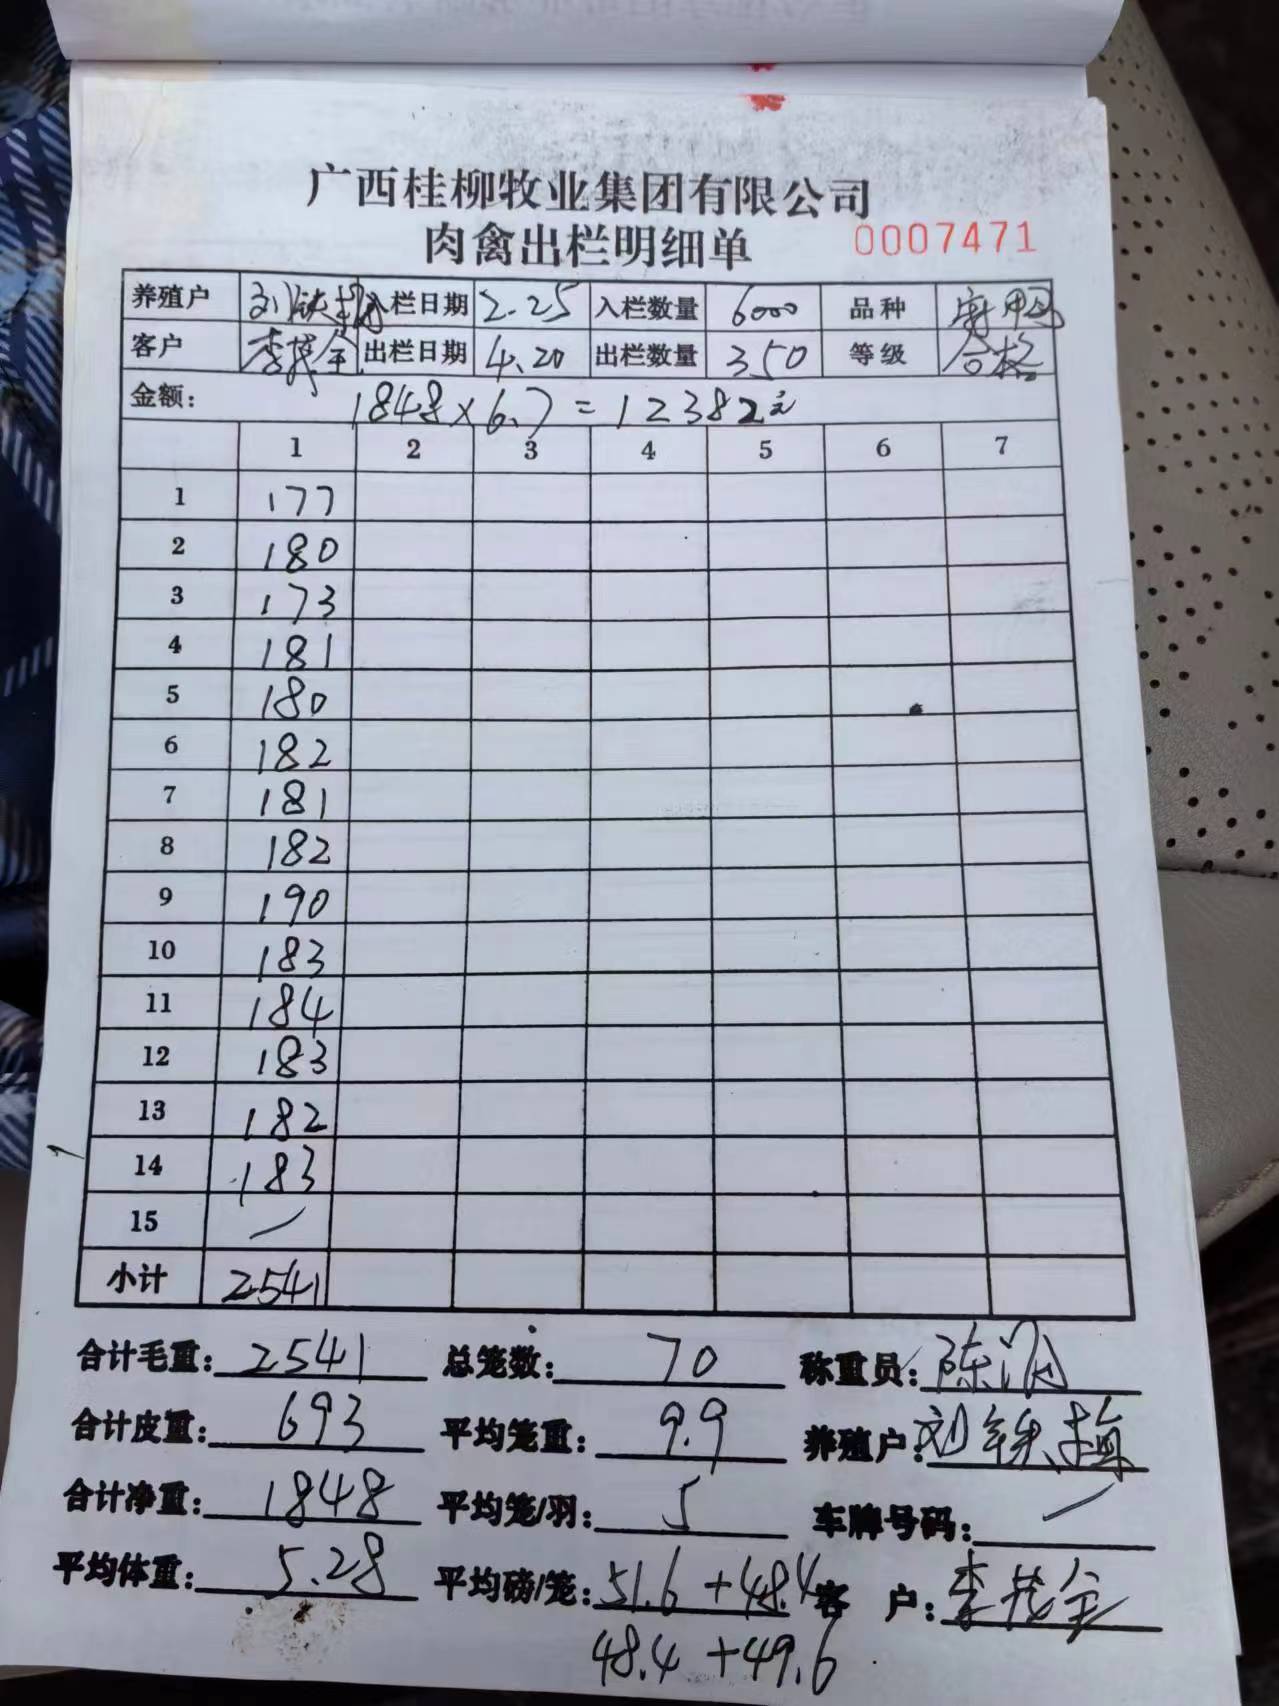 广西桂柳牧业集团有限公司
肉禽出栏明细单 0007471
养殖户 刘铁梅 入栏日期 2.25 入栏数量 6000 品种
客户 李茂全 出栏日期 4.20 出栏数量 350 等级 合格
金额: 1848×6.7=12382元
1 2 3 4 5 6 7
1 177
2 180
3 173
4 181
5 180
6 182
7 181
8 182
9 190
10 183
11 184
12 183
13 182
14 183
15 /
小计 2541
合计毛重: 2541 总笼数: 70 称重员: 陈
合计皮重: 693 平均笼重: 9.9 养殖户: 刘铁梅
合计净重: 1848 平均笼/羽: 5 车牌号码: /
平均体重: 5.28 平均磅/笼: 51.6+48.4 客户: 李茂全
48.4+49.6